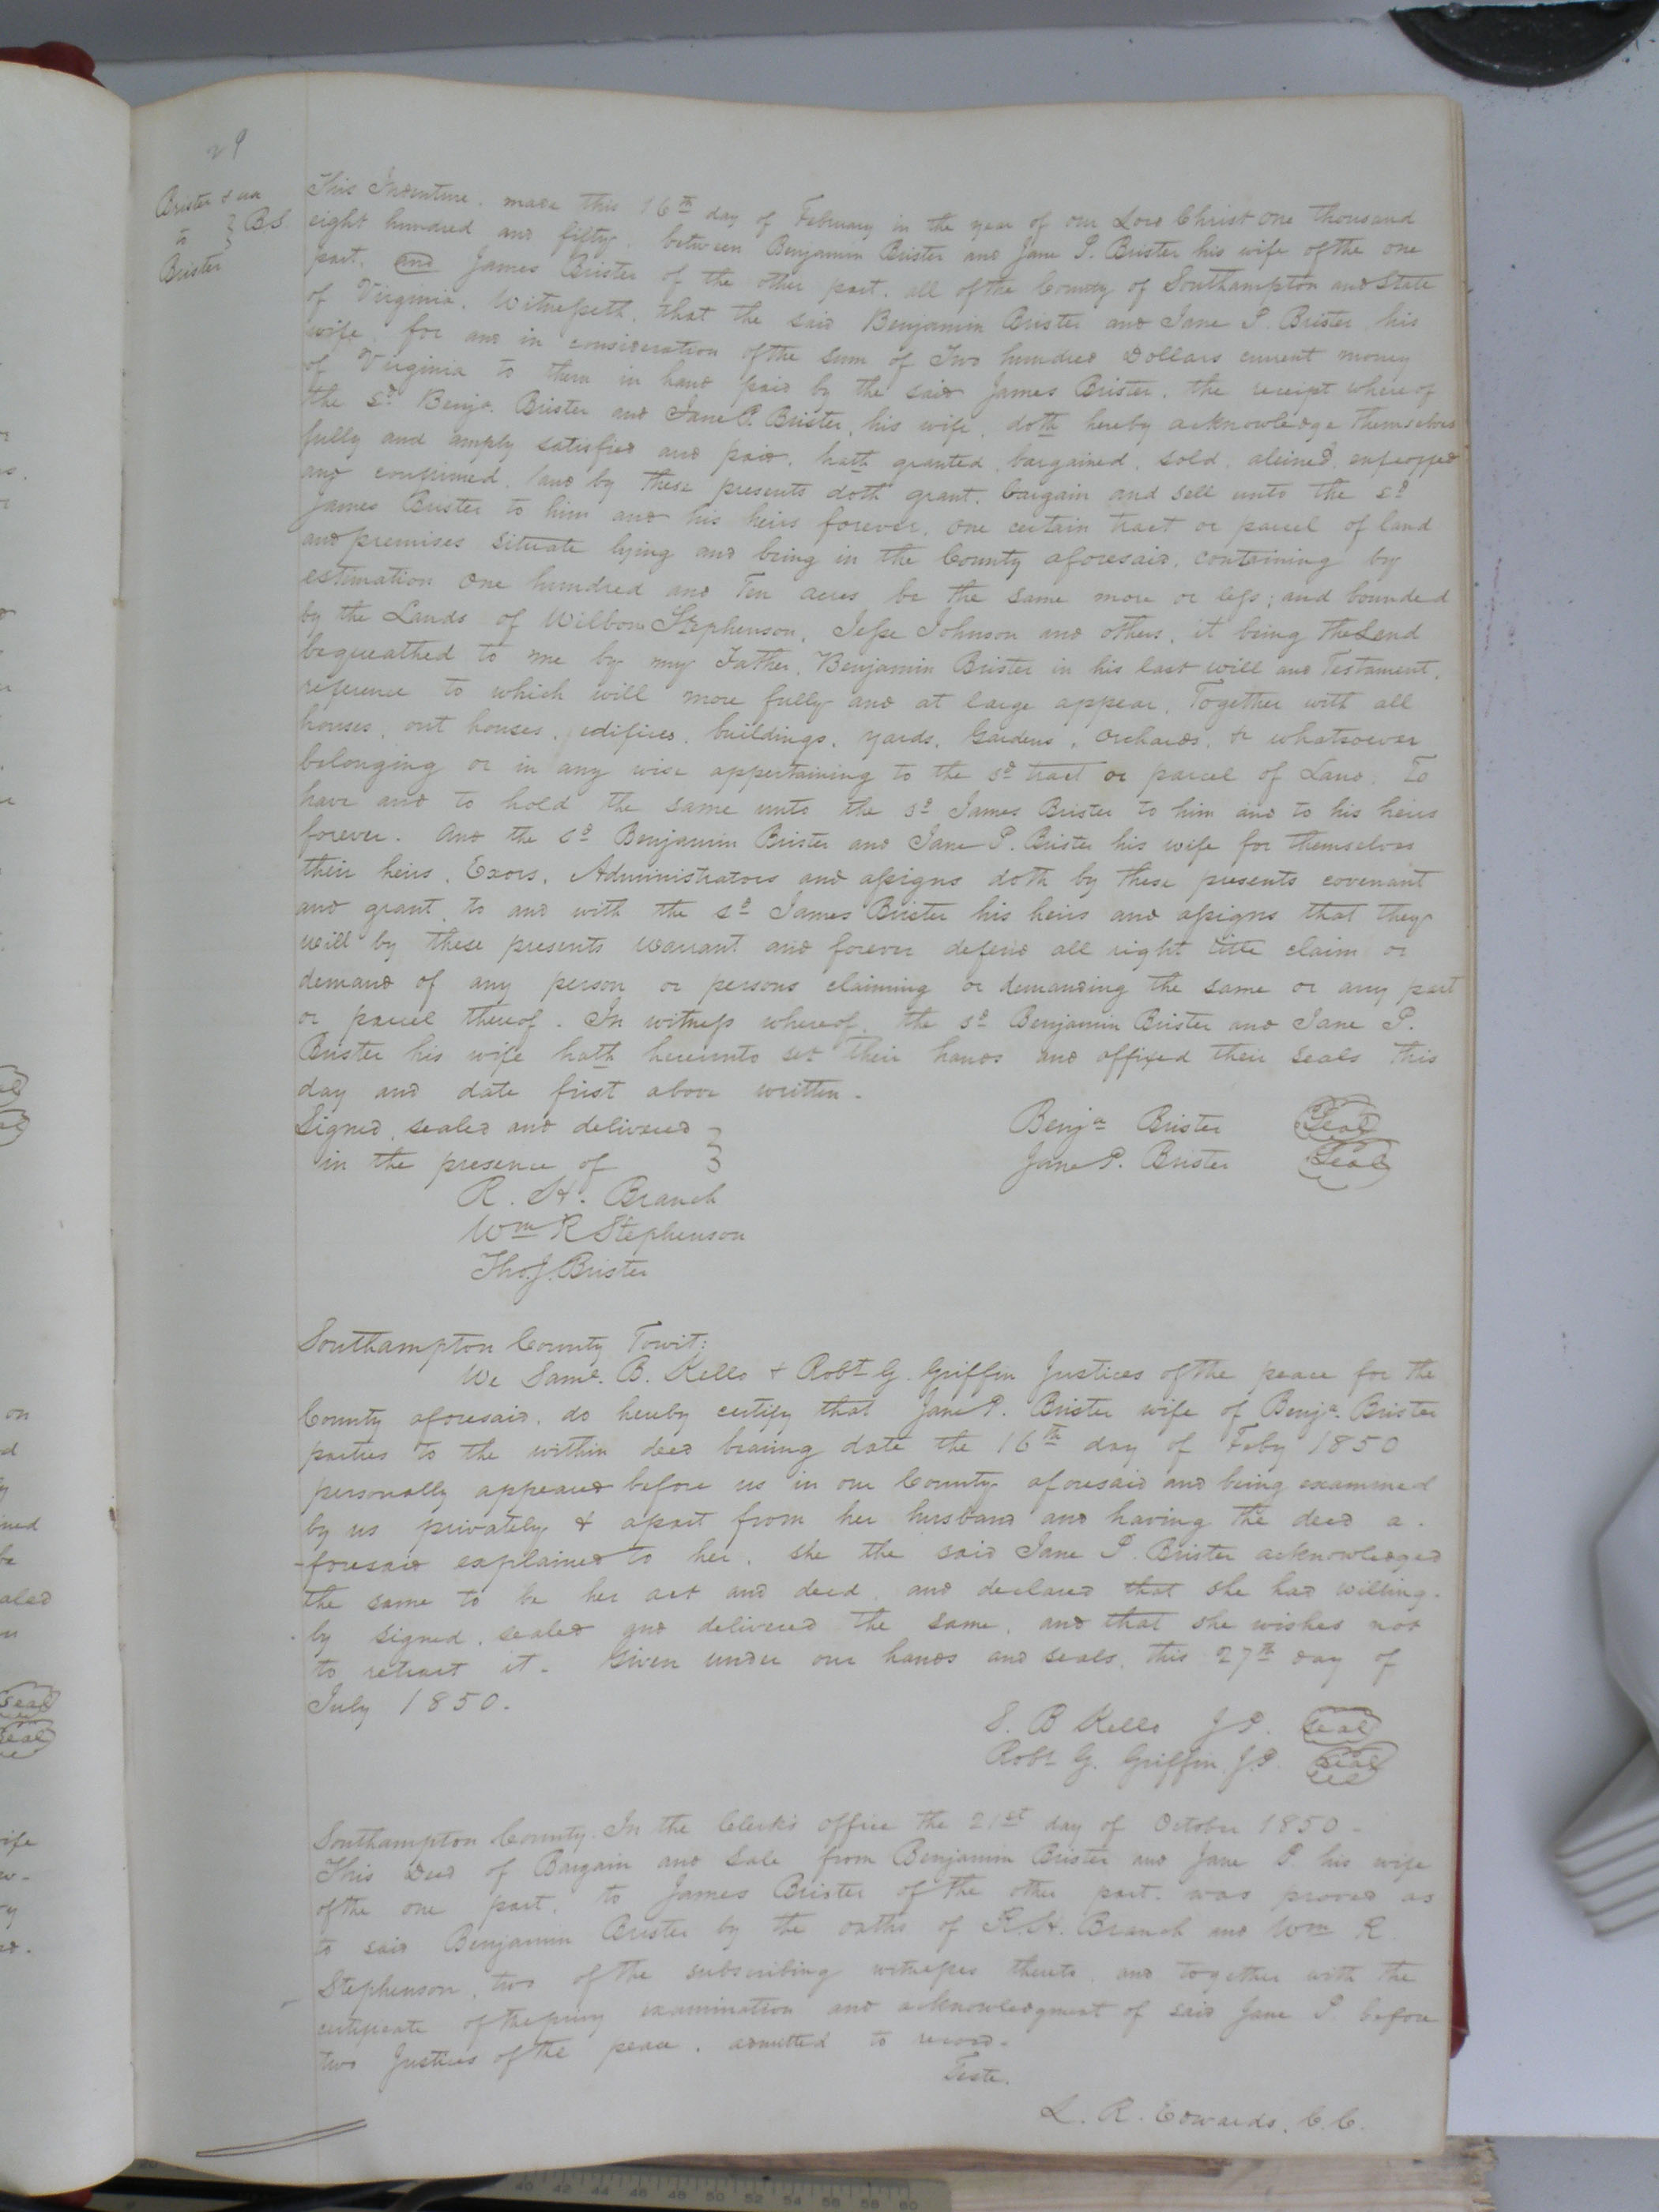 29
Brister & ux
to } B.S.
Brister
This Indenture. made this 16th day of February in the year of our Lord Christ one thousand
eight hundred and fifty. between Benjamin Brister and Jane P. Brister his wife of the one
part. and James Brister of the other part. all of the County of Southampton and State
of Virginia. Witnesseth, that the said Benjamin Brister and Jane P. Brister, his
wife, for and in consideration of the sum of Two hundred Dollars current money
of Virginia to them in hand paid by the said James Brister. the receipt whereof
the sd Benja. Brister and Jane P. Brister, his wife, doth hereby acknowledge themselves
fully and amply satisfied and paid. hath granted, bargained, sold, aleined, enfeoffed
and confirmed, and by these presents doth grant. bargain and sell unto the sd
James Brister to him and his heirs forever. one certain tract or parcel of land
and premises situate lying and being in the County aforesaid, containing by
estimation One hundred and Ten acres be the same more or less; and bounded
by the Lands of Wilbon Stephenson, Jesse Johnson and others, it being the Land
bequeathed to me by my Father, Benjamin Brister in his last will and Testament.
reference to which will more fully and at large appear. Together with all
houses, out houses, edifices, buildings, yards, Gardens, orchards, &c whatsoever
belonging or in any wise appertaining to the sd tract or parcel of Land. To
have and to hold the same unto the sd James Brister to him and to his heirs
forever. And the sd Benjamin Brister and Jane P. Brister his wife for themselves
their heirs, Exors, Administrators and assigns doth by these presents covenant
and grant, to and with the sd James Brister his heirs and assigns that they
will by these presents warrant and forever defend all right title claim or
demand of any person or persons claiming or demanding the same or any part
or parcel thereof. In witness whereof, the sd Benjamin Brister and Jane P.
Brister his wife hath hereunto set their hands and affixed their seals this
day and date first above written.
Signed, sealed and delivered } Benja Brister Seal
in the presence of Jane P. Brister Seal
R. H. Branch
Wm R Stephenson
Tho. J. Brister
Southampton County Towit:
We Saml. B. Kello & Robt G. Griffin Justices of the peace for the
County aforesaid, do hereby certify that Jane P. Brister wife of Benja. Brister
parties to the within deed bearing date the 16th day of Feby 1850
personally appeared before us in our County aforesaid and being examined
by us privately & apart from her husband and having the deed a-
-foresaid explained to her, she the said Jane P. Brister acknowledged
the same to be her act and deed, and declared that she had willing-
-ly signed, sealed and delivered the same, and that she wishes not
to retract it. Given under our hands and seals, this 27th day of
July 1850.
S. B Kello J P. seal
Robt G. Griffin J.P. seal
Southampton County. In the Clerk's office the 21st day of October 1850.
This Deed of Bargain and Sale from Benjamin Brister and Jane P. his wife
of the one part, to James Brister of the other part. was proved as
to said Benjamin Brister by the oaths of R. H. Branch and Wm R.
Stephenson, two of the subscribing witnesses thereto, and together with the
certificate of the privy examination and acknowledgment of said Jane P. before
two Justices of the peace, admitted to record.
Teste.
L. R. Edwards, C.C.
40 42 44 46 48 50 52 54 56 58 60